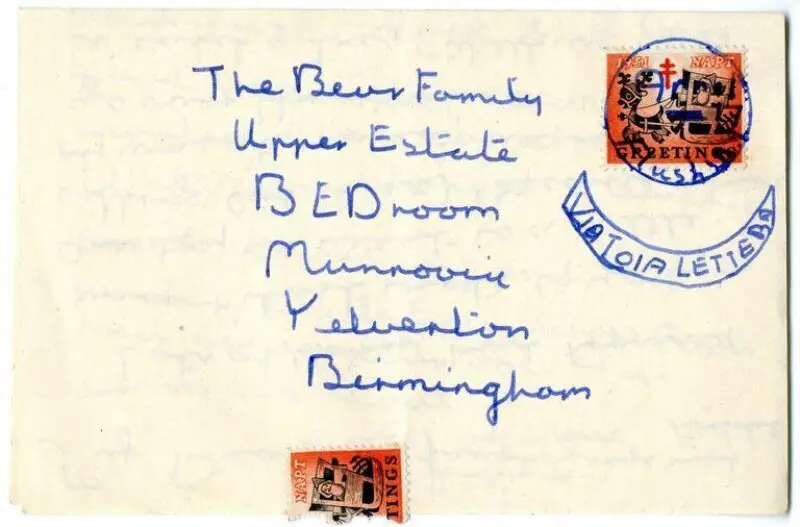 The Bear Family
Upper Estate
BEDroom
Munrovia
Yelverton
Birmingham
1951 NAPT
GREETINGS
VIATOIA LETTERS
NAPT
TINGS